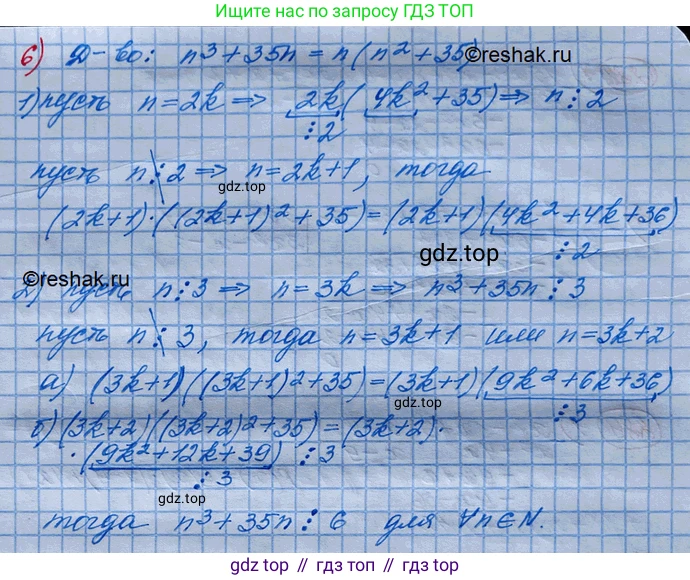 Ищите нас по запросу ГДЗ ТОП
6) Д-во: n³ + 35n = n(n² + 35)
©reshak.ru
1) пусть n = 2k ⇒ 2k(4k² + 35) ⇒ n ⋮ 2
⋮ 2
пусть n ⋮̸ 2 ⇒ n = 2k+1, тогда
gdz.top
(2k+1)·((2k+1)² + 35) = (2k+1)(4k² + 4k + 36)
gdz.top ⋮ 2
©reshak.ru
2) пусть n ⋮ 3 ⇒ n = 3k ⇒ n³ + 35n ⋮ 3
пусть n ⋮̸ 3, тогда n = 3k+1 или n = 3k+2
а) (3k+1)((3k+1)² + 35) = (3k+1)(9k² + 6k + 36)
gdz.top ⋮ 3
б) (3k+2)((3k+2)² + 35) = (3k+2)·
·(9k² + 12k + 39) ⋮ 3
⋮ 3
gdz.top
тогда n³ + 35n ⋮ 6 для ∀n∈N.
gdz.top // гдз.топ // gdz.top // гдз.топ